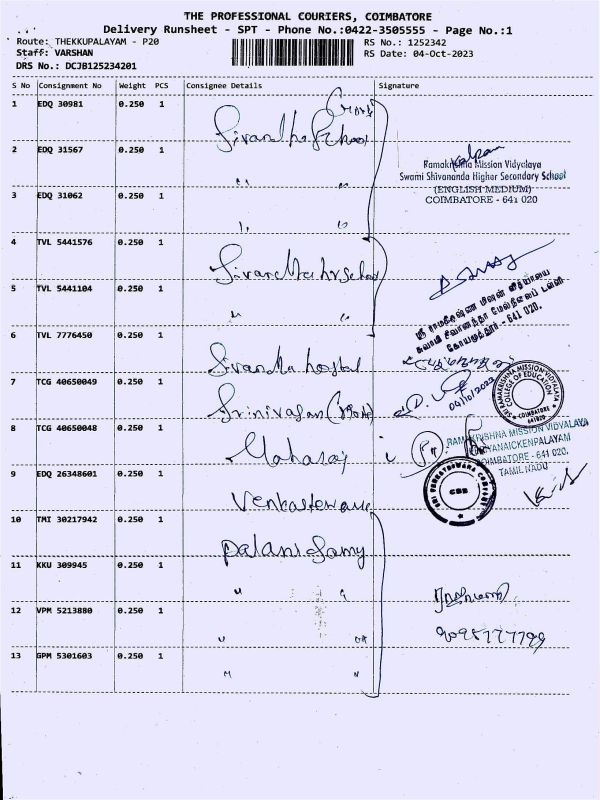 THE PROFESSIONAL COURIERS, COIMBATORE
Delivery Runsheet - SPT - Phone No.:0422-3505555 - Page No.:1
Route: THEKKUPALAYAM - P20 RS No.: 1252342
Staff: VARSHAN RS Date: 04-Oct-2023
DRS No.: DCJB125234201
S No Consignment No Weight PCS Consignee Details Signature
1 EDQ 30981 0.250 1
2 EDQ 31567 0.250 1 " "
Ramakrishna Mission Vidyalaya
Swami Shivananda Higher Secondary School
(ENGLISH MEDIUM)
COIMBATORE - 641 020
3 EDQ 31062 0.250 1 " "
4 TVL 5441576 0.250 1
5 TVL 5441104 0.250 1 " "
கோயமுத்தூர் - 641 020.
6 TVL 7776450 0.250 1
7 TCG 40650049 0.250 1 Srinivasan
04/10/2023
SRI RAMAKRISHNA MISSION VIDYALAYA
COLLEGE OF EDUCATION
COIMBATORE
641020
8 TCG 40650048 0.250 1 Maharaj
RAMAKRISHNA MISSION VIDYALAYA
COIMBATORE - 641 020.
TAMIL NADU
9 EDQ 26348601 0.250 1
SRI VENKATESWARA COMPANY
CBE
10 TMI 30217942 0.250 1 Palanisamy
11 KKU 309945 0.250 1 " "
12 VPM 5213880 0.250 1 " "
13 GPM 5301603 0.250 1 " "